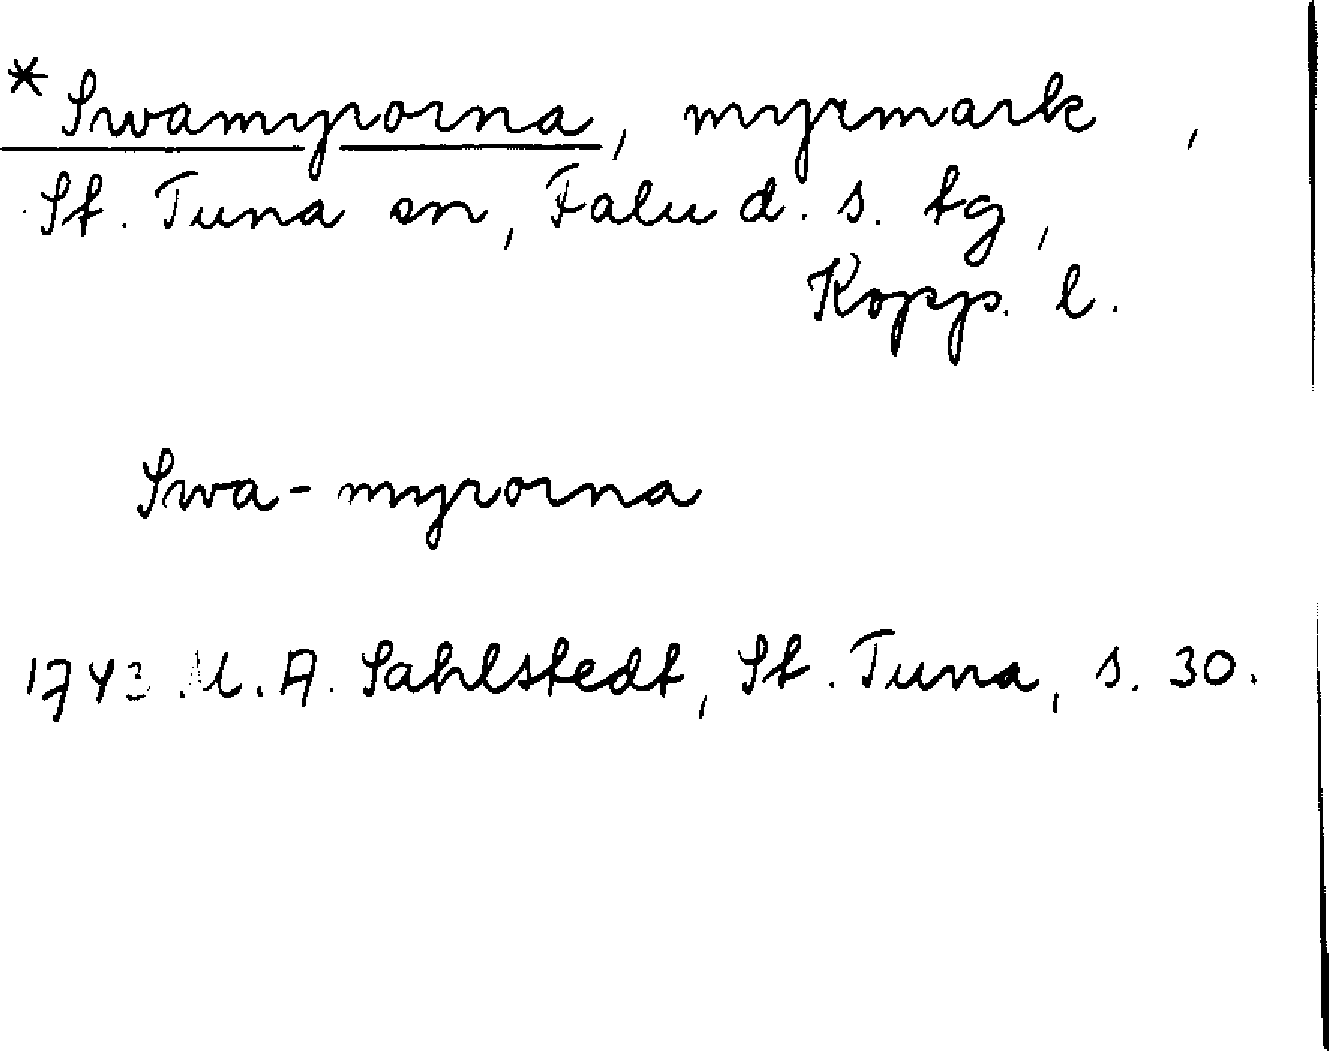 * Swamyrorna, myrmark,
St. Tuna sn, Falu d. s. tg,
Kopp. l.
Swa-myrorna
1743 M. A. Sahlstedt, St. Tuna, s. 30.